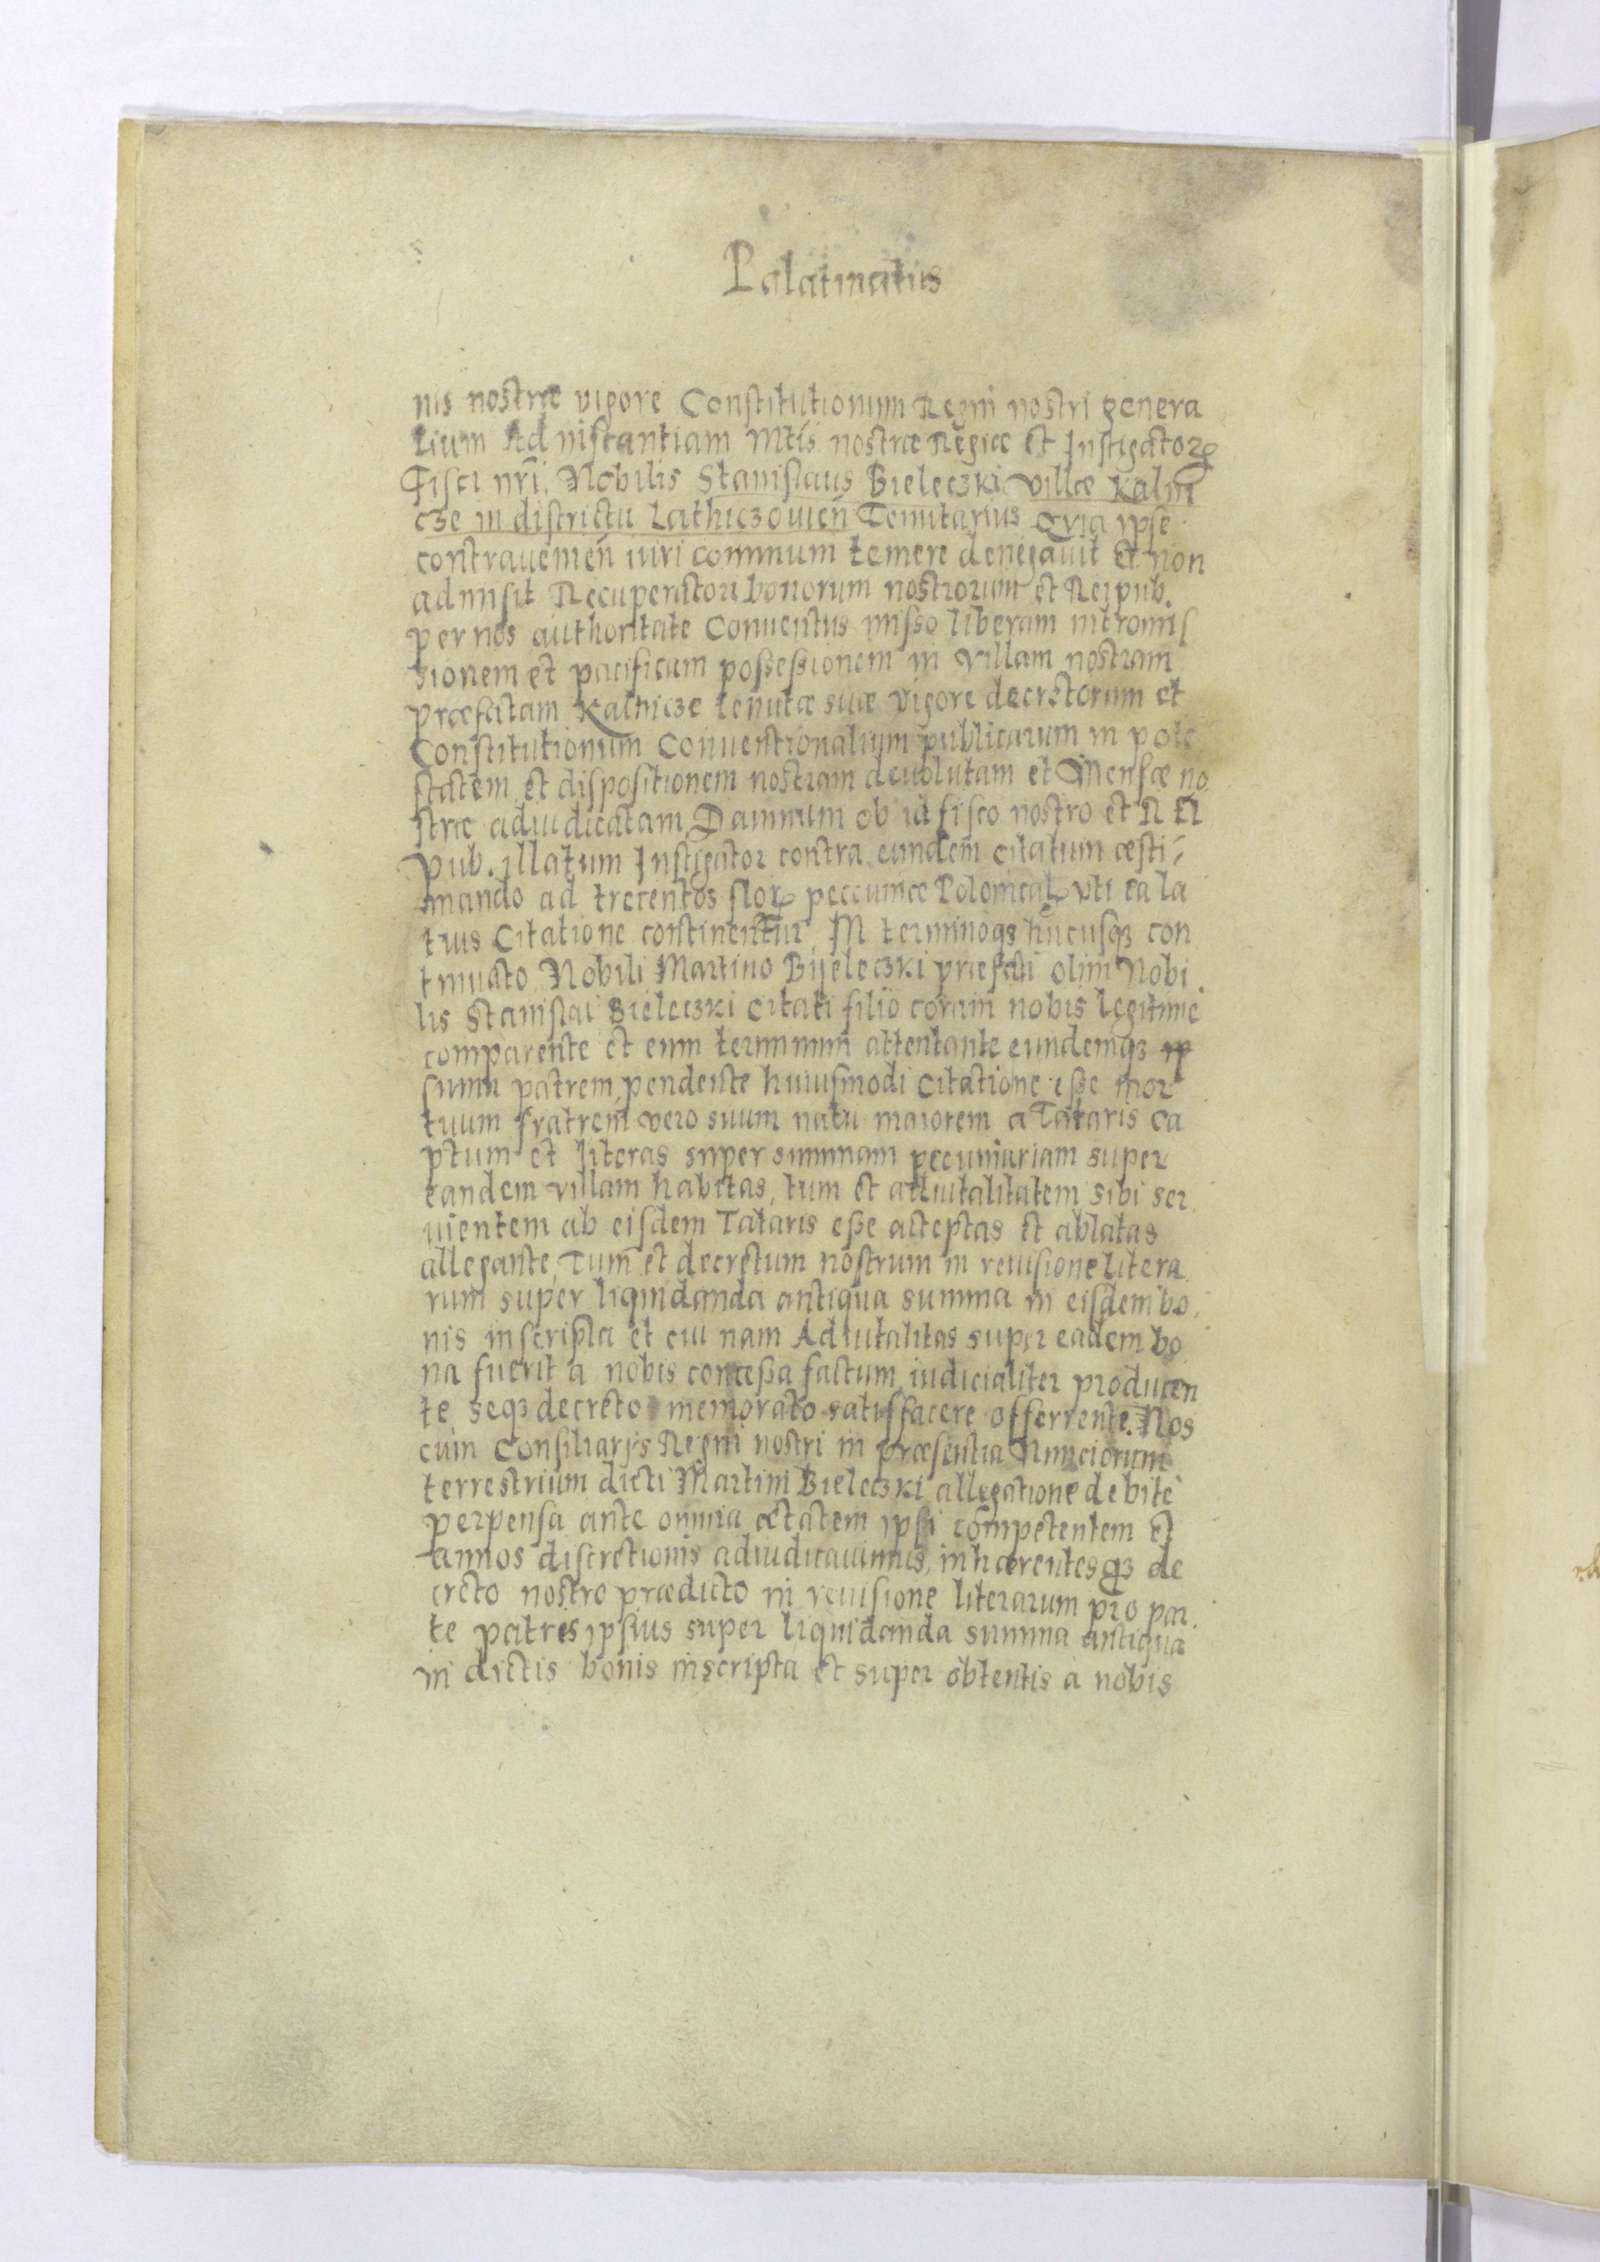 Palatinatus
nis nostræ vigore Constitutionum Regni nostri genera
lium Ad instantiam Mtis nostræ Regiæ et Instigator
Fisci nri. Nobilis Stanislaus Bieleczki villæ Kalni
cze in districtu Lathiczovien Tenutarius Qvia ipse
contravenien iuri communi temere denegavit et non
admisit Recuperatori bonorum nostrorum et Reipub.
per nos authoritate Conventus misso liberam intromis
sionem et pacificam possessionem in villam nostram
præfatam Kalnicze tenutæ suæ vigore decretorum et
Constitutionum Conventionalium publicarum in pote
statem et dispositionem nostram devolutam et Mensæ no
stræ adiudicatam Damnum ob id fisco nostro et R Ei
pub. illatum Instigator contra eundem citatum æsti
mando ad trecentos flor pecuniæ Polonical vti ea la
tius Citatione continentur, In terminoqz hucusqz con
tinuato Nobili Martino Bijeleczki præfati olim Nobi
lis Stanislai Bieleczki citati filio coram nobis legitime
comparente et eum terminum attentante eundemqz ip
sum patrem, pendente huiusmodi citatione esse mor
tuum fratrem vero suum natu maiorem a Tataris ca
ptum et literas super summam pecuniariam super
eandem villam habitas, tum et advitalitatem sibi ser
vientem ab eisdem Tataris esse acceptas et ablatas
allegante, Tum et decretum nostrum in revisione litera
rum super liquidanda antiqua summa in eisdem bo
nis inscripta et cui nam Advitalitas super eadem bo
na fuerit a nobis concessa factum, iudicialiter producen
te seqz decreto memorato satisfacere offerrente. Nos
cum Consiliarijs Regni nostri in præsentia Nunciorum
terrestrium dicti Martini Bieleczki allegatione debite
perpensa ante omnia ætatem ipsi competentem et
annos discretionis adiudicavimus, inhærentesqz de
creto nostro prædicto in revisione literarum pro par
te patris ipsius super liquidanda summa antiqua
in dictis bonis inscripta et super obtentis a nobis